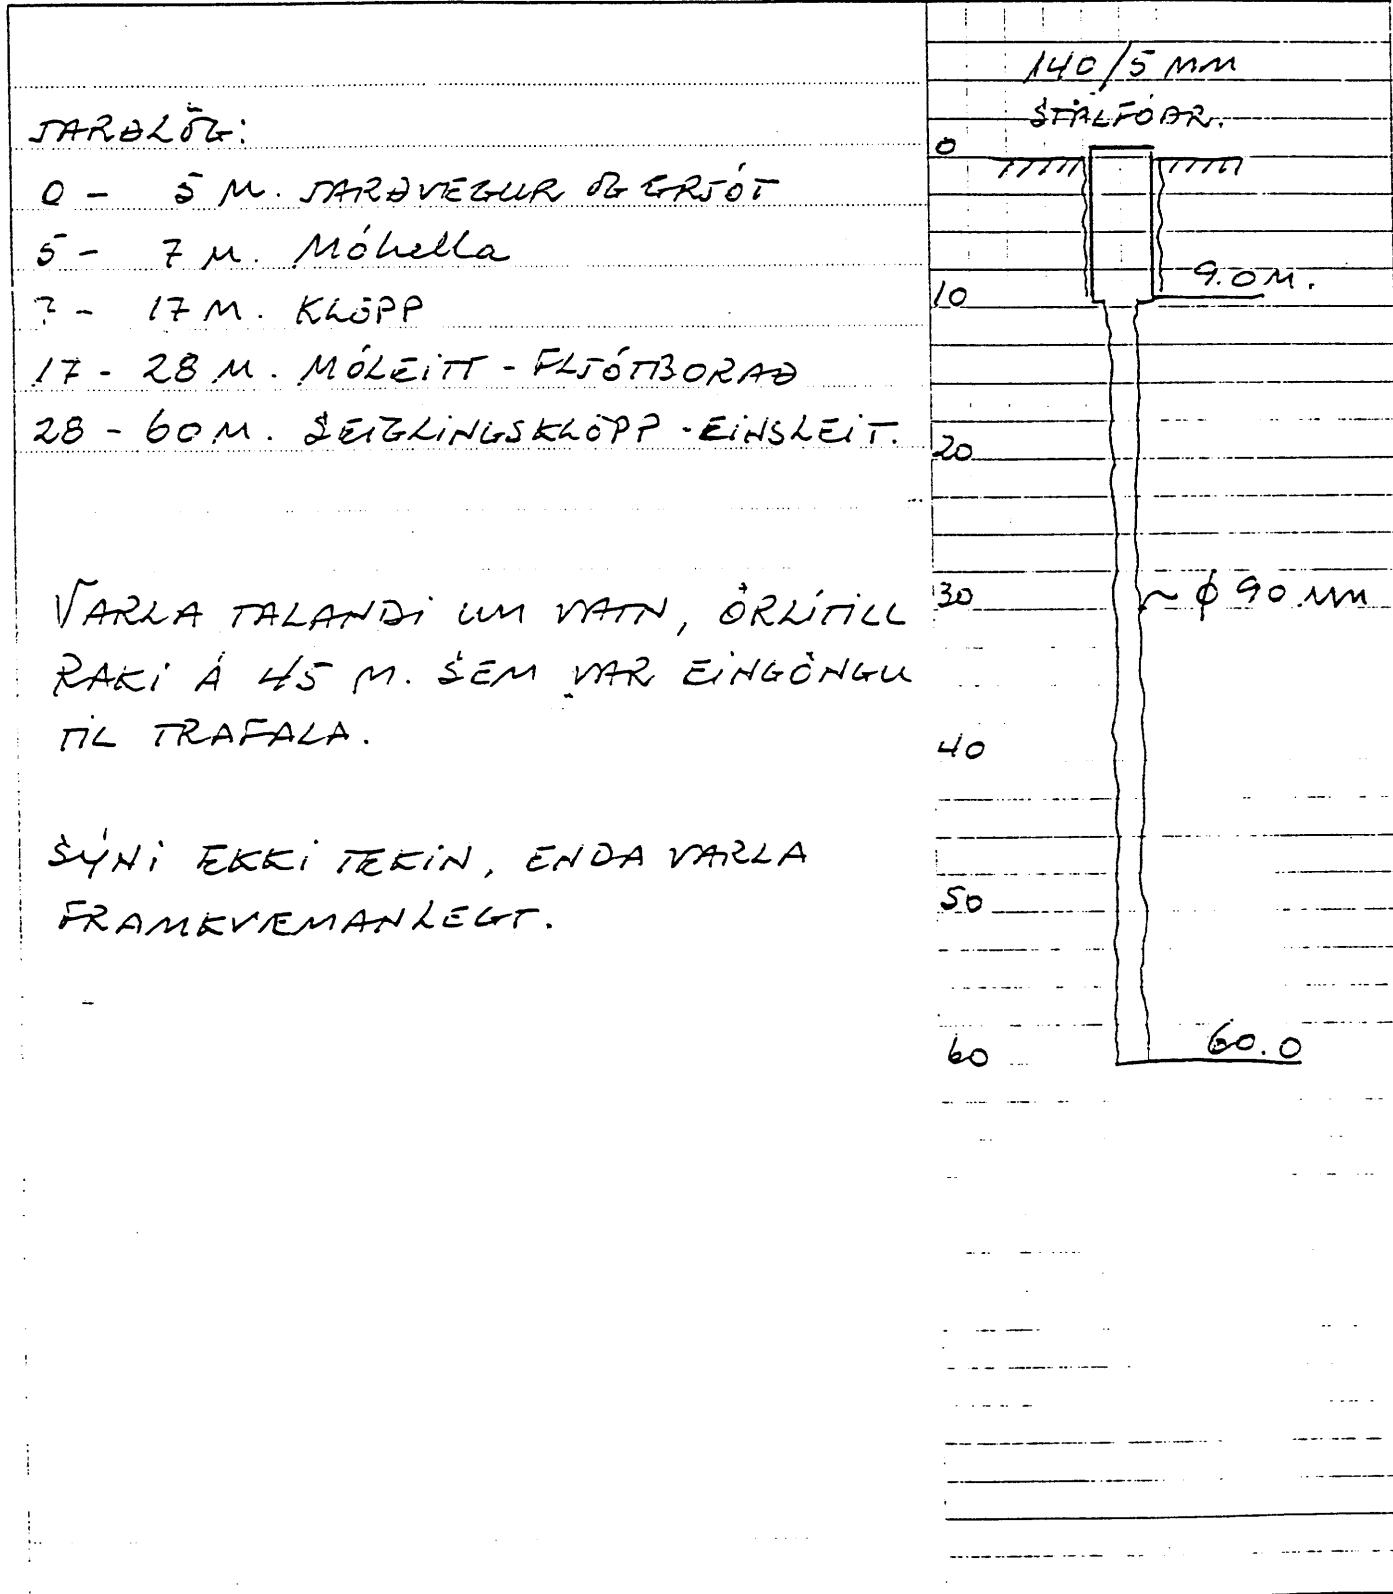 JARÐLÖG:
0 - 5 M. JARÐVEGUR OG GRJÓT
5 - 7 M. Móhella
7 - 17 M. KLÖPP
17 - 28 M. MÓLEITT - FLJÓTBORAÐ
28 - 60 M. SEIGLINGSKLÖPP - EINSLEIT.
VARLA TALANDI UM VATN, ÖRLÍTILL
RAKI Á 45 M. SEM VAR EINGÖNGU
TIL TRAFALA.
SÝNI EKKI TEKIN, ENDA VARLA
FRAMKVÆMANLEGT.
140/5 MM
STÁLFÓÐR.
0
9.0 M.
10
20
30
~ φ 90 mm
40
50
60
60.0